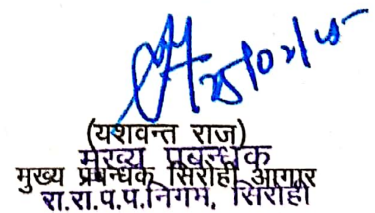 (यशवन्त राज)
मुख्य प्रबन्धक
मुख्य प्रबन्धक सिरोही आगार
रा.रा.प.प.निगम, सिरोही